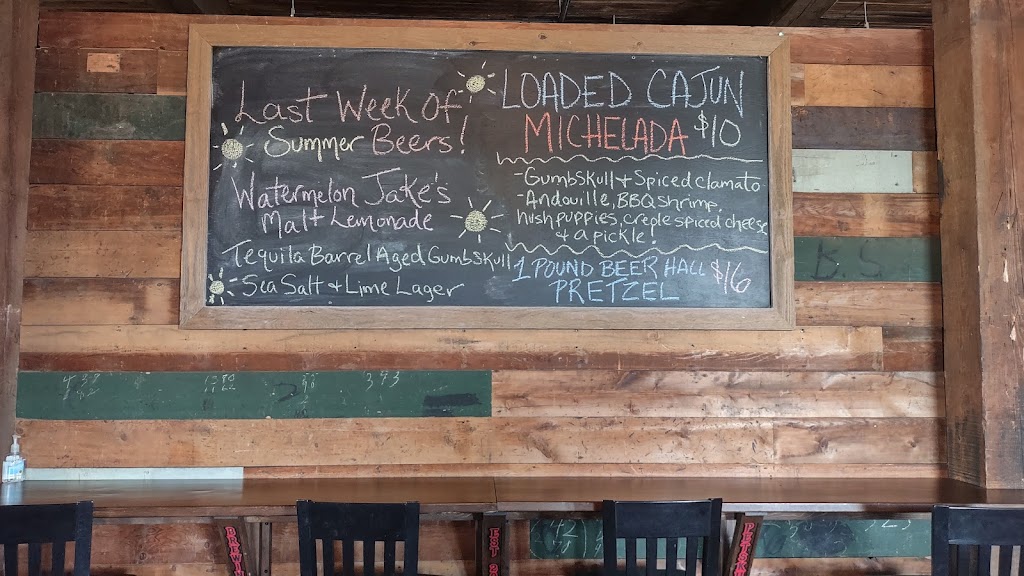 Last Week of
Summer Beers!
Watermelon Jake's
Malt Lemonade
Tequila Barrel Aged GumbSkull
Sea Salt + Lime Lager
LOADED CAJUN
MICHELADA $10
-GumbSkull + Spiced Clamato
-Andouille, BBQ shrimp,
hush puppies, creole spiced cheese
+ a pickle!
1 POUND BEER HALL $16
PRETZEL
B.S
343